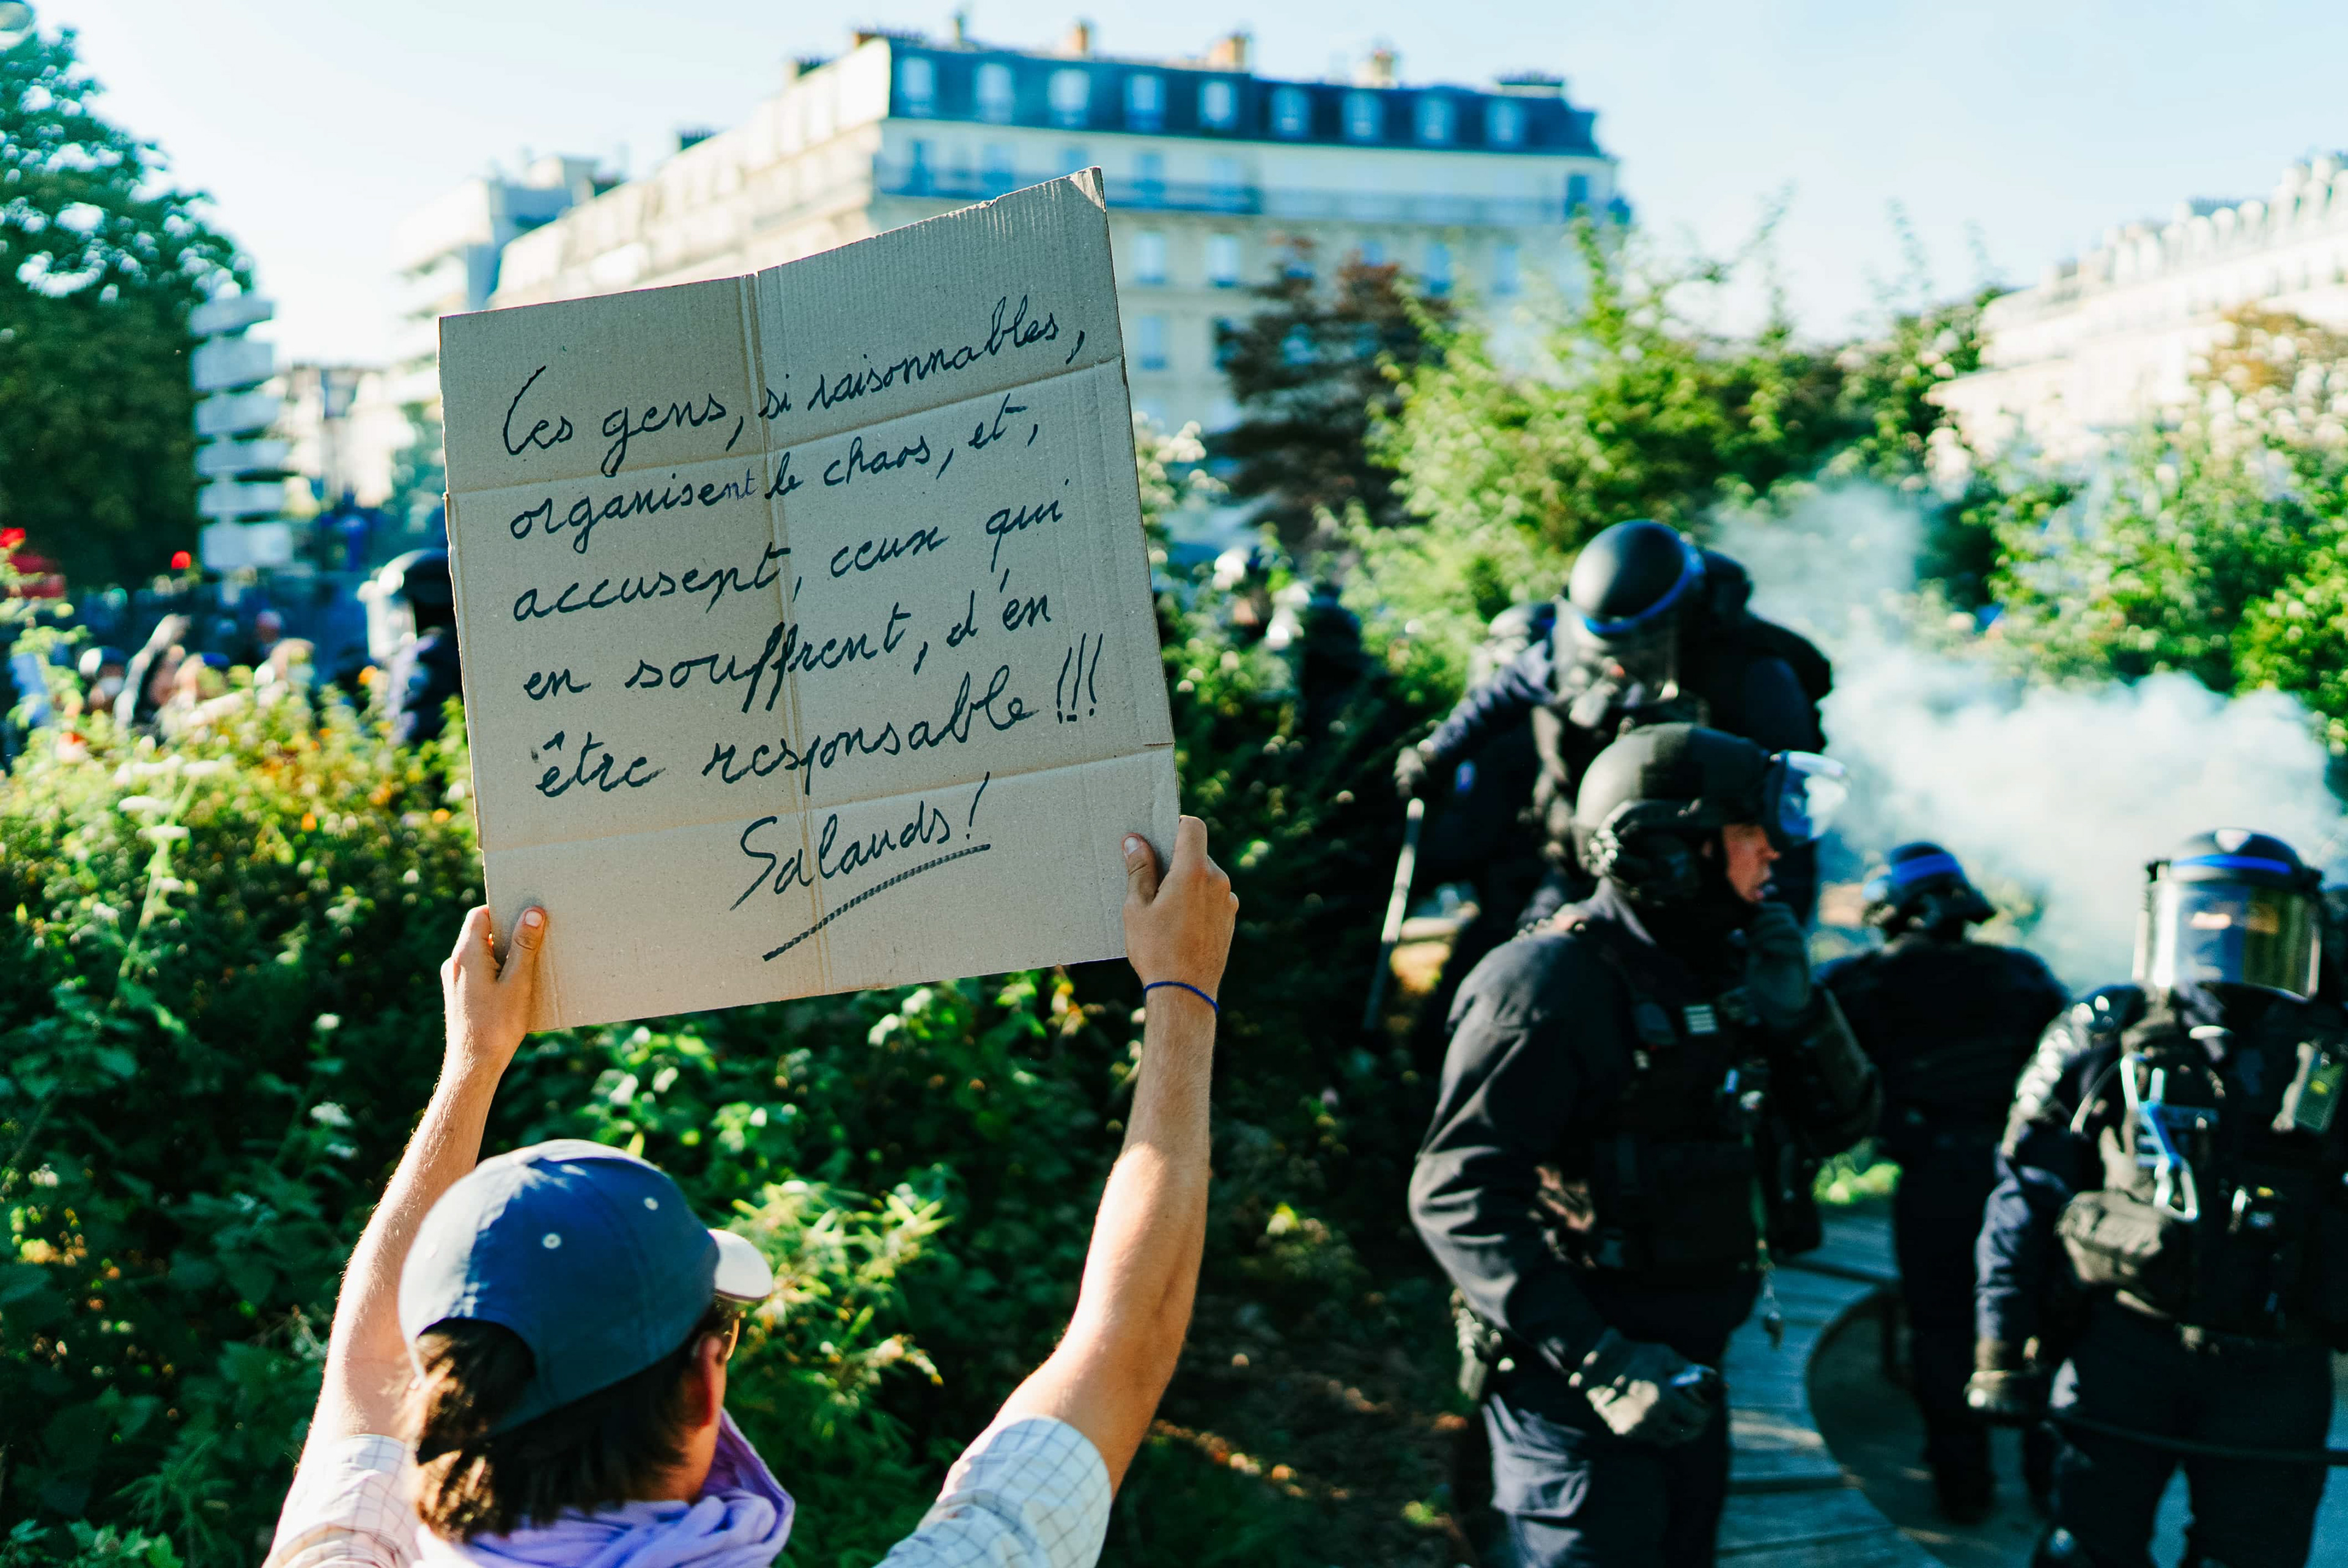 Ces gens, si raisonnables,
organisent le chaos, et,
accusent, ceux qui
en souffrent, d'en
être responsable !!!
Salauds !